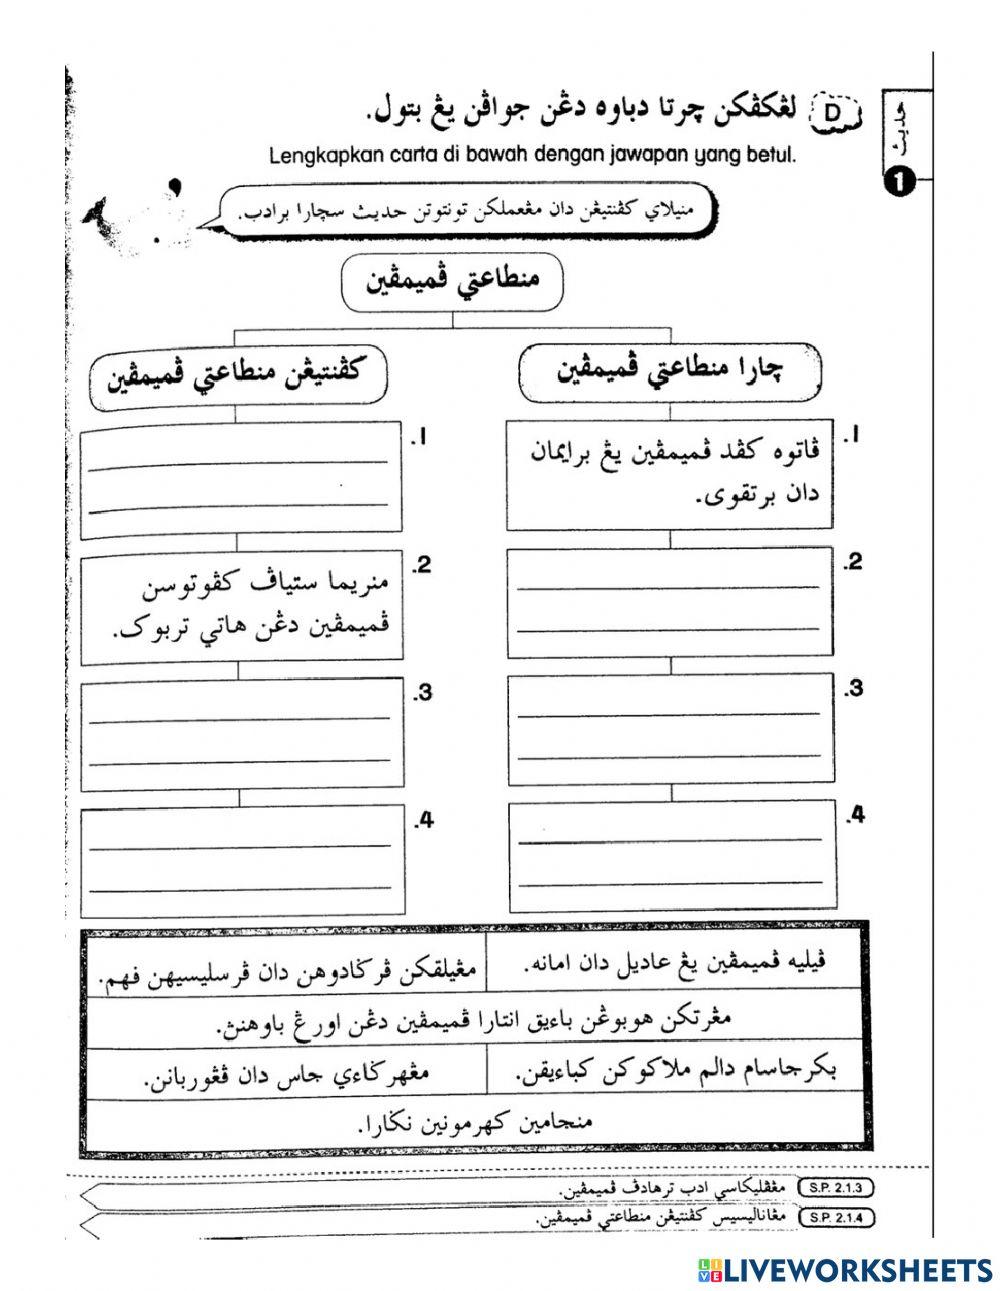 حديث
1
D لڠکڤکن چرتا دباوه دڠن جواڤن يڠ بتول.
Lengkapkan carta di bawah dengan jawapan yang betul.
منيلاي کڤنتيڠن دان مڠعملکن تونتوتن حديث سچارا برادب.
منطاعتي ڤميمڤين
چارا منطاعتي ڤميمڤين
1. ڤاتوه کڤد ڤميمڤين يڠ برايمان
دان برتقوى.
2.
3.
4.
کڤنتيڠن منطاعتي ڤميمڤين
1.
2. منريما ستياڤ کڤوتوسن
ڤميمڤين دڠن هاتي تربوک.
3.
4.
ڤيليه ڤميمڤين يڠ عاديل دان امانه.
مڠيلقکن ڤرݢادوهن دان ڤرسليسيهن فهم.
مڠرتکن هوبوڠن باءيق انتارا ڤميمڤين دڠن اورڠ باوهنڽ.
بکرجاسام دالم ملاکوکن کباءيقن.
مڠهرݢاءي جاس دان ڤڠوربانن.
منجامين کهرمونين نݢارا.
S.P. 2.1.3 مڠڤليکاسي ادب ترهادڤ ڤميمڤين.
S.P. 2.1.4 مڠاناليسيس کڤنتيڠن منطاعتي ڤميمڤين.
LIVEWORKSHEETS